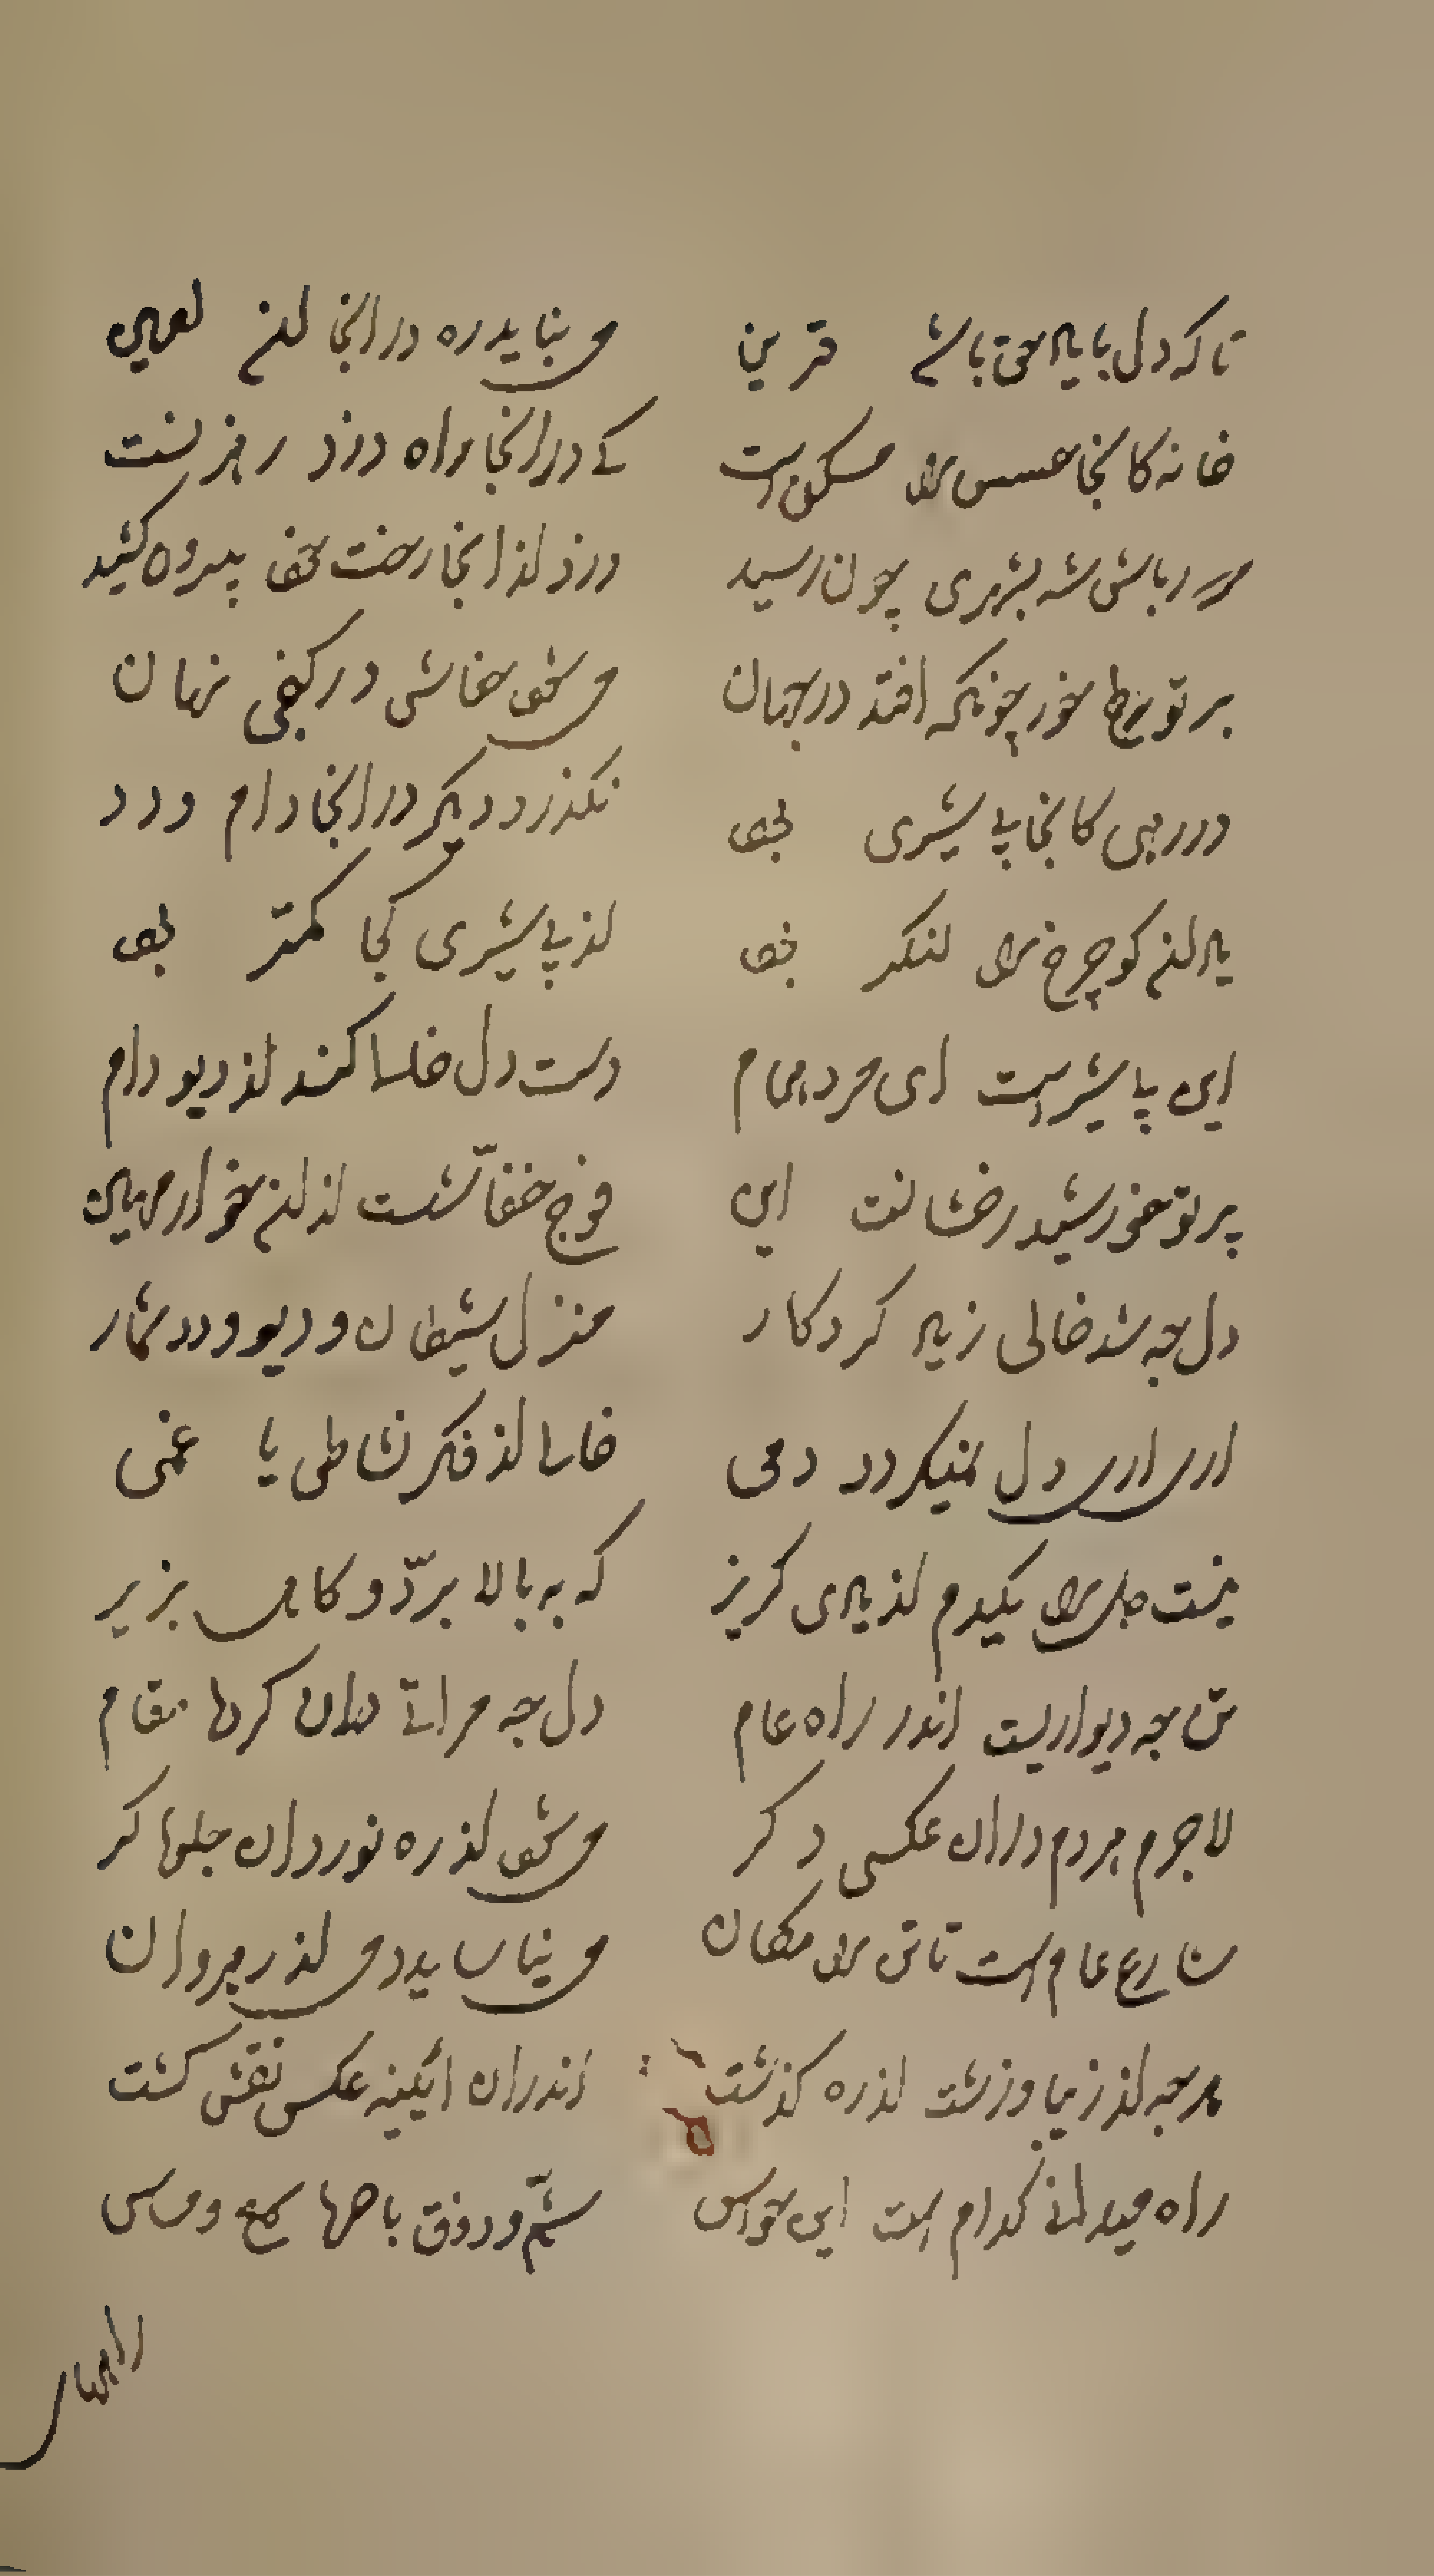 تا که دل با یاد حق باشد قرین می نیابد ره در انجا آن لعین
خانه کانجا عسس را مسکن است کی در انجا راه دزد رهزنست
دور باش شه بشهری چون رسید دزد از انجا رخت خود بیرون کشید
پرتو خور چونکه افتد در جهان می شود خفاش در کنجی نهان
در رهی کانجا پی شیری بود نگذرد دیگر در انجا دام و دد
یاد آن کو چرخ را لنگر بود از پی شیری کجا کمتر بود
این پی شیر است ای مرد همام دست دل خالی کند از دیو و دام
پرتو خورشید رخشانست این فوج خفاشست از آن خوار و مهین
دل چه شد خالی ز یاد کردکار منزل شیطان و دیو و دد شمار
اری اری دل نمیکردد دمی خالی از فکر نشاطی یا غمی
نیست دل را یکدم از یادی کریز که به بالا برد و کاهی بزیر
تن چه دیواریست اندر راه عام دل چه مراتی در ان کرده مقام
لاجرم هردم در ان عکسی دکر می شود از ره نوردان جلوه کر
شارع عام است تا تن را مکان می نیاساید دمی از رهروان
هرچه از زیبا و زشت از ره کذشت اندران ائینه عکس نقش کشت
راه میدانی کدام است این حواس شم و ذوق باصره سمع و مساس